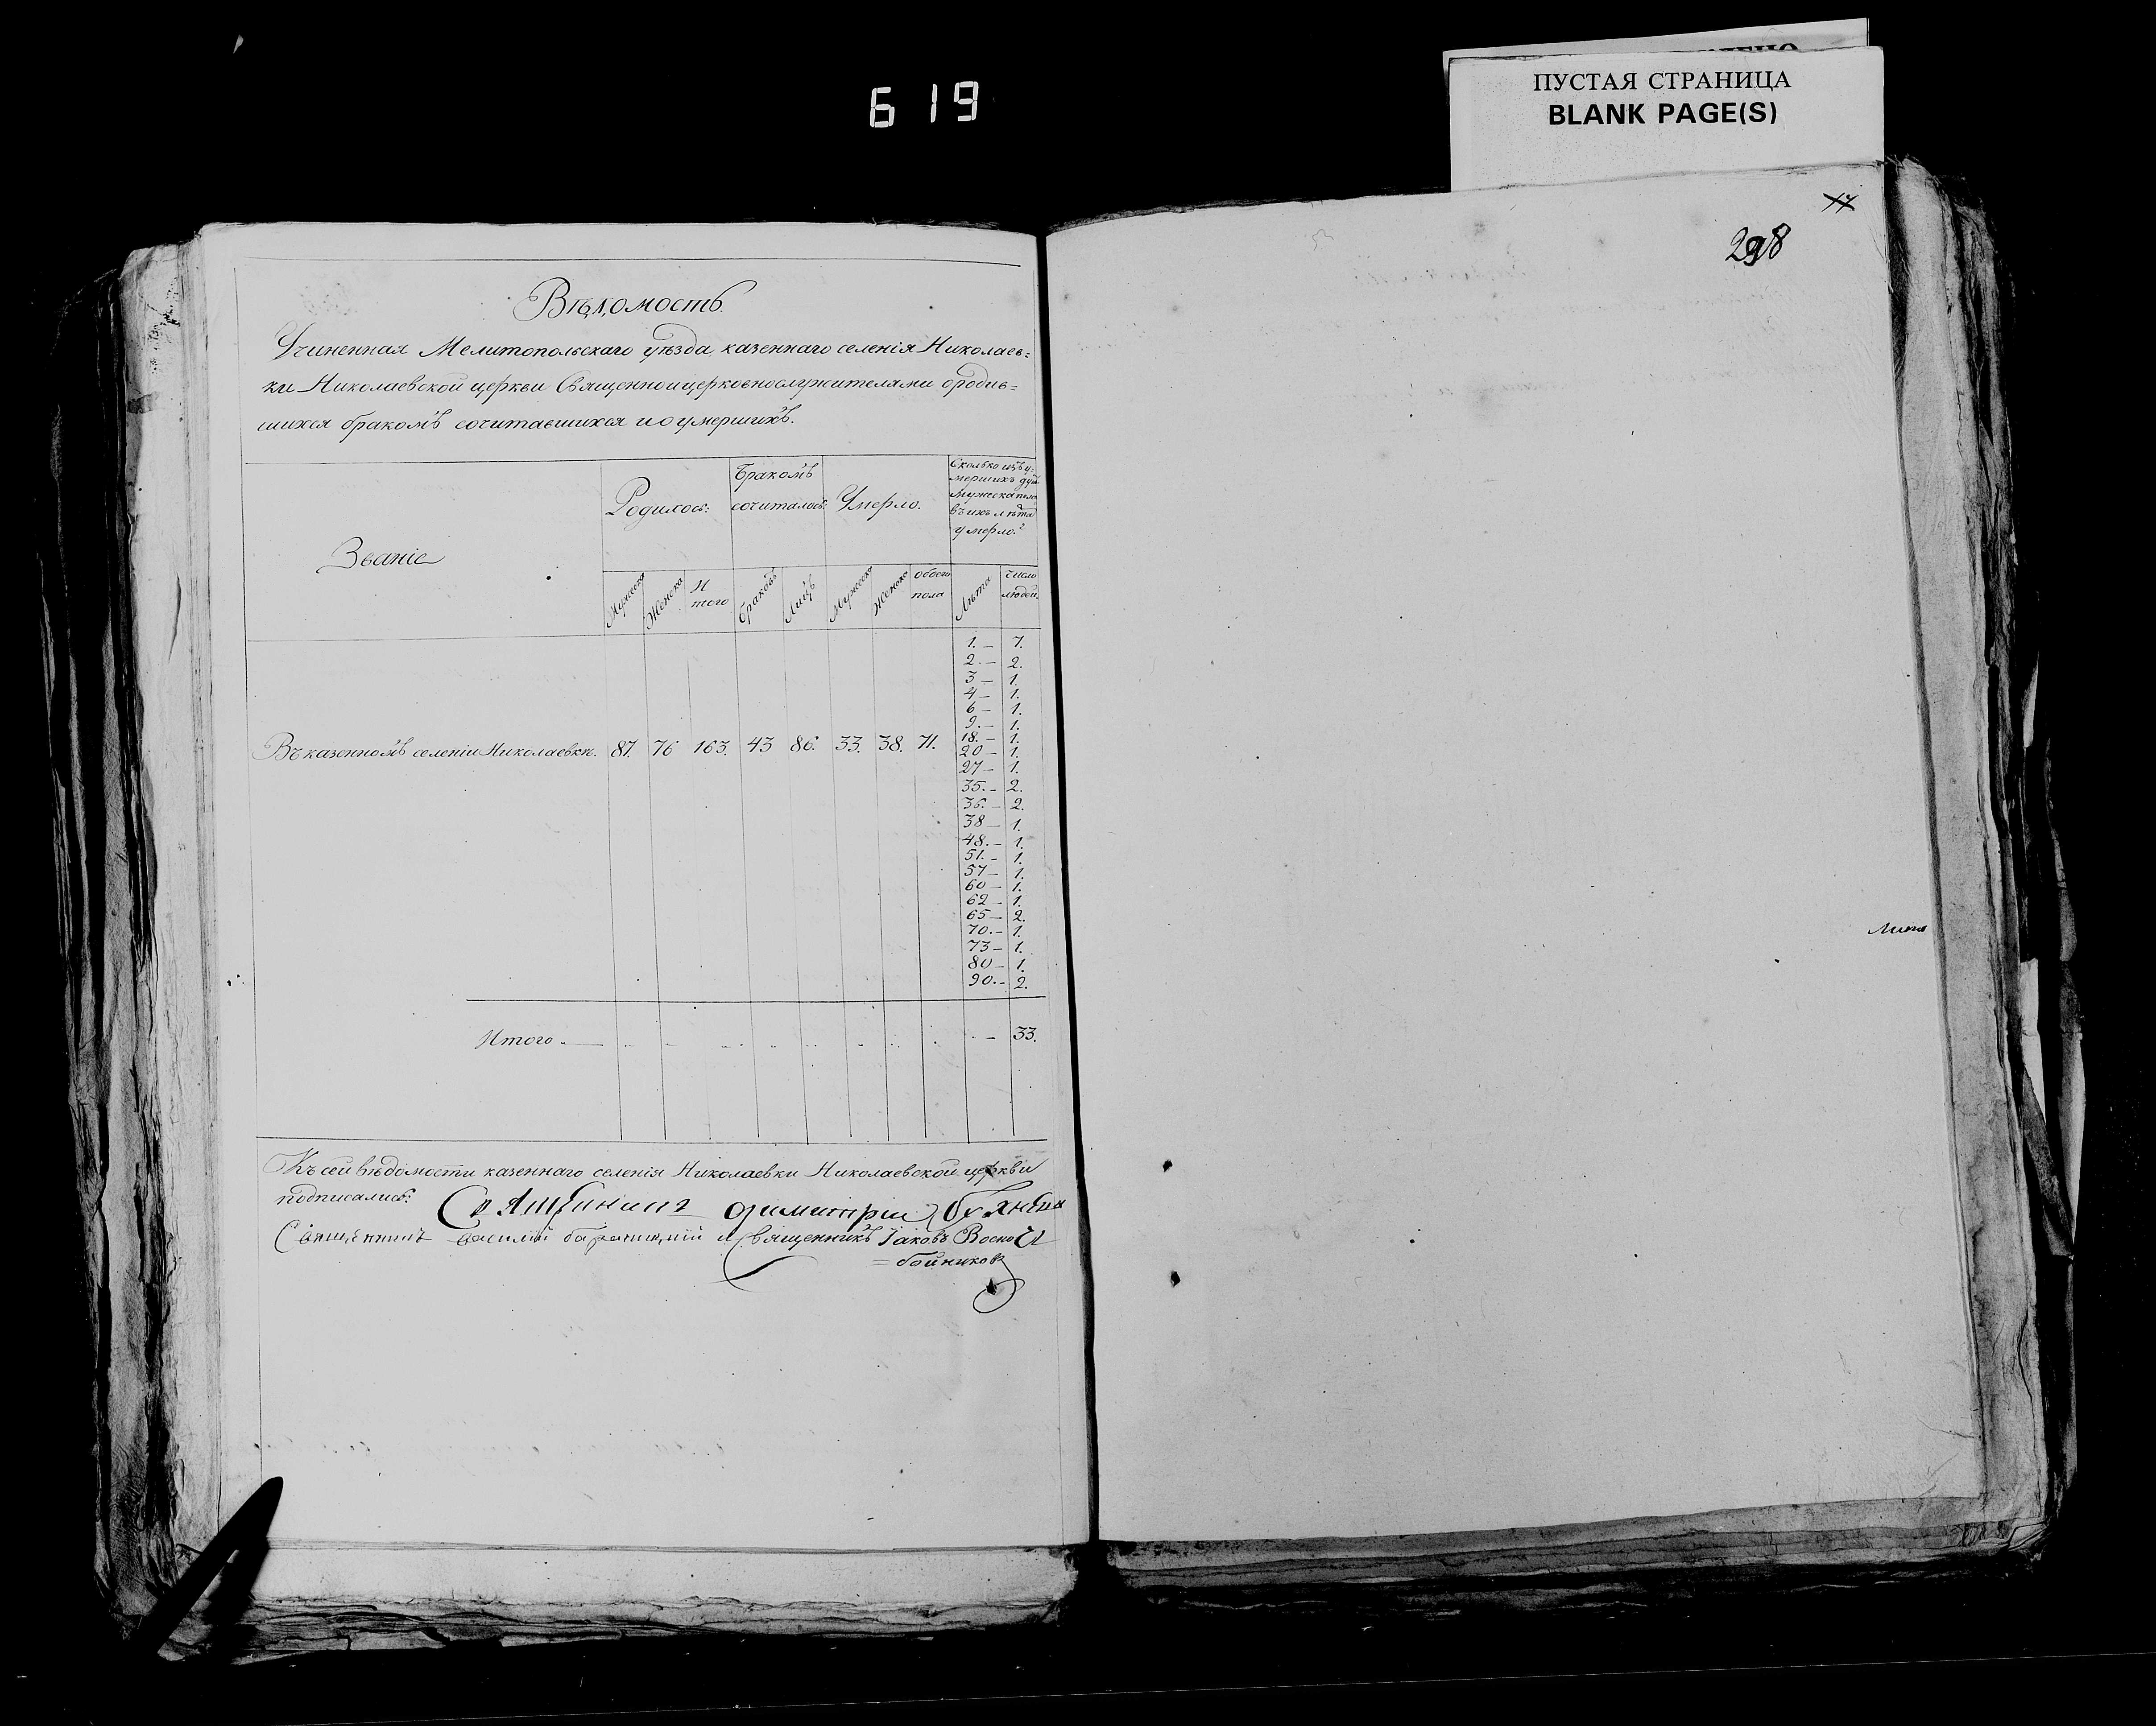 619
ПУСТАЯ СТРАНИЦА
BLANK PAGE(S)
Вѣдомость.
Учиненная Мелитопольскаго уѣзда казеннаго селенія Николаев=
ки Николаевской церкви Священноицерковнослужителями ородив=
шихся бракомъ сочитавшихся и о умершихъ.
Званіе
Родилось:
Бракомъ
сочиталось:
Умерло.
Сколько изъ у=
мершихъ душ
мужеска пола
въ ихъ лѣта
умерло?
Мужеска
Женска
И
того
браковъ
лицъ
Мужеска
Женска
обоего
пола
Лѣта
число
людей.
Въ казенномъ селеніи Николаевкѣ. 87. 76 163. 43 86. 33. 38. 71.
1. — 7.
2. — 2.
3 — 1.
4 — 1.
6 — 1.
9. — 1.
18. — 1.
20 — 1.
27 — 1.
35. — 2.
36. — 2.
38 — 1.
48. — 1.
51. — 1.
57 — 1.
60 — 1.
62 — 1.
65 — 2.
70. — 1.
73 — 1.
80 — 1.
90. — 2.
Итого — 33.
Къ сей вѣдомости казеннаго селенія Николаевки Николаевской церкви
подписались:
Священникъ Димитрій
Священникъ василій Священникъ Іаковъ
=бойников
17
298